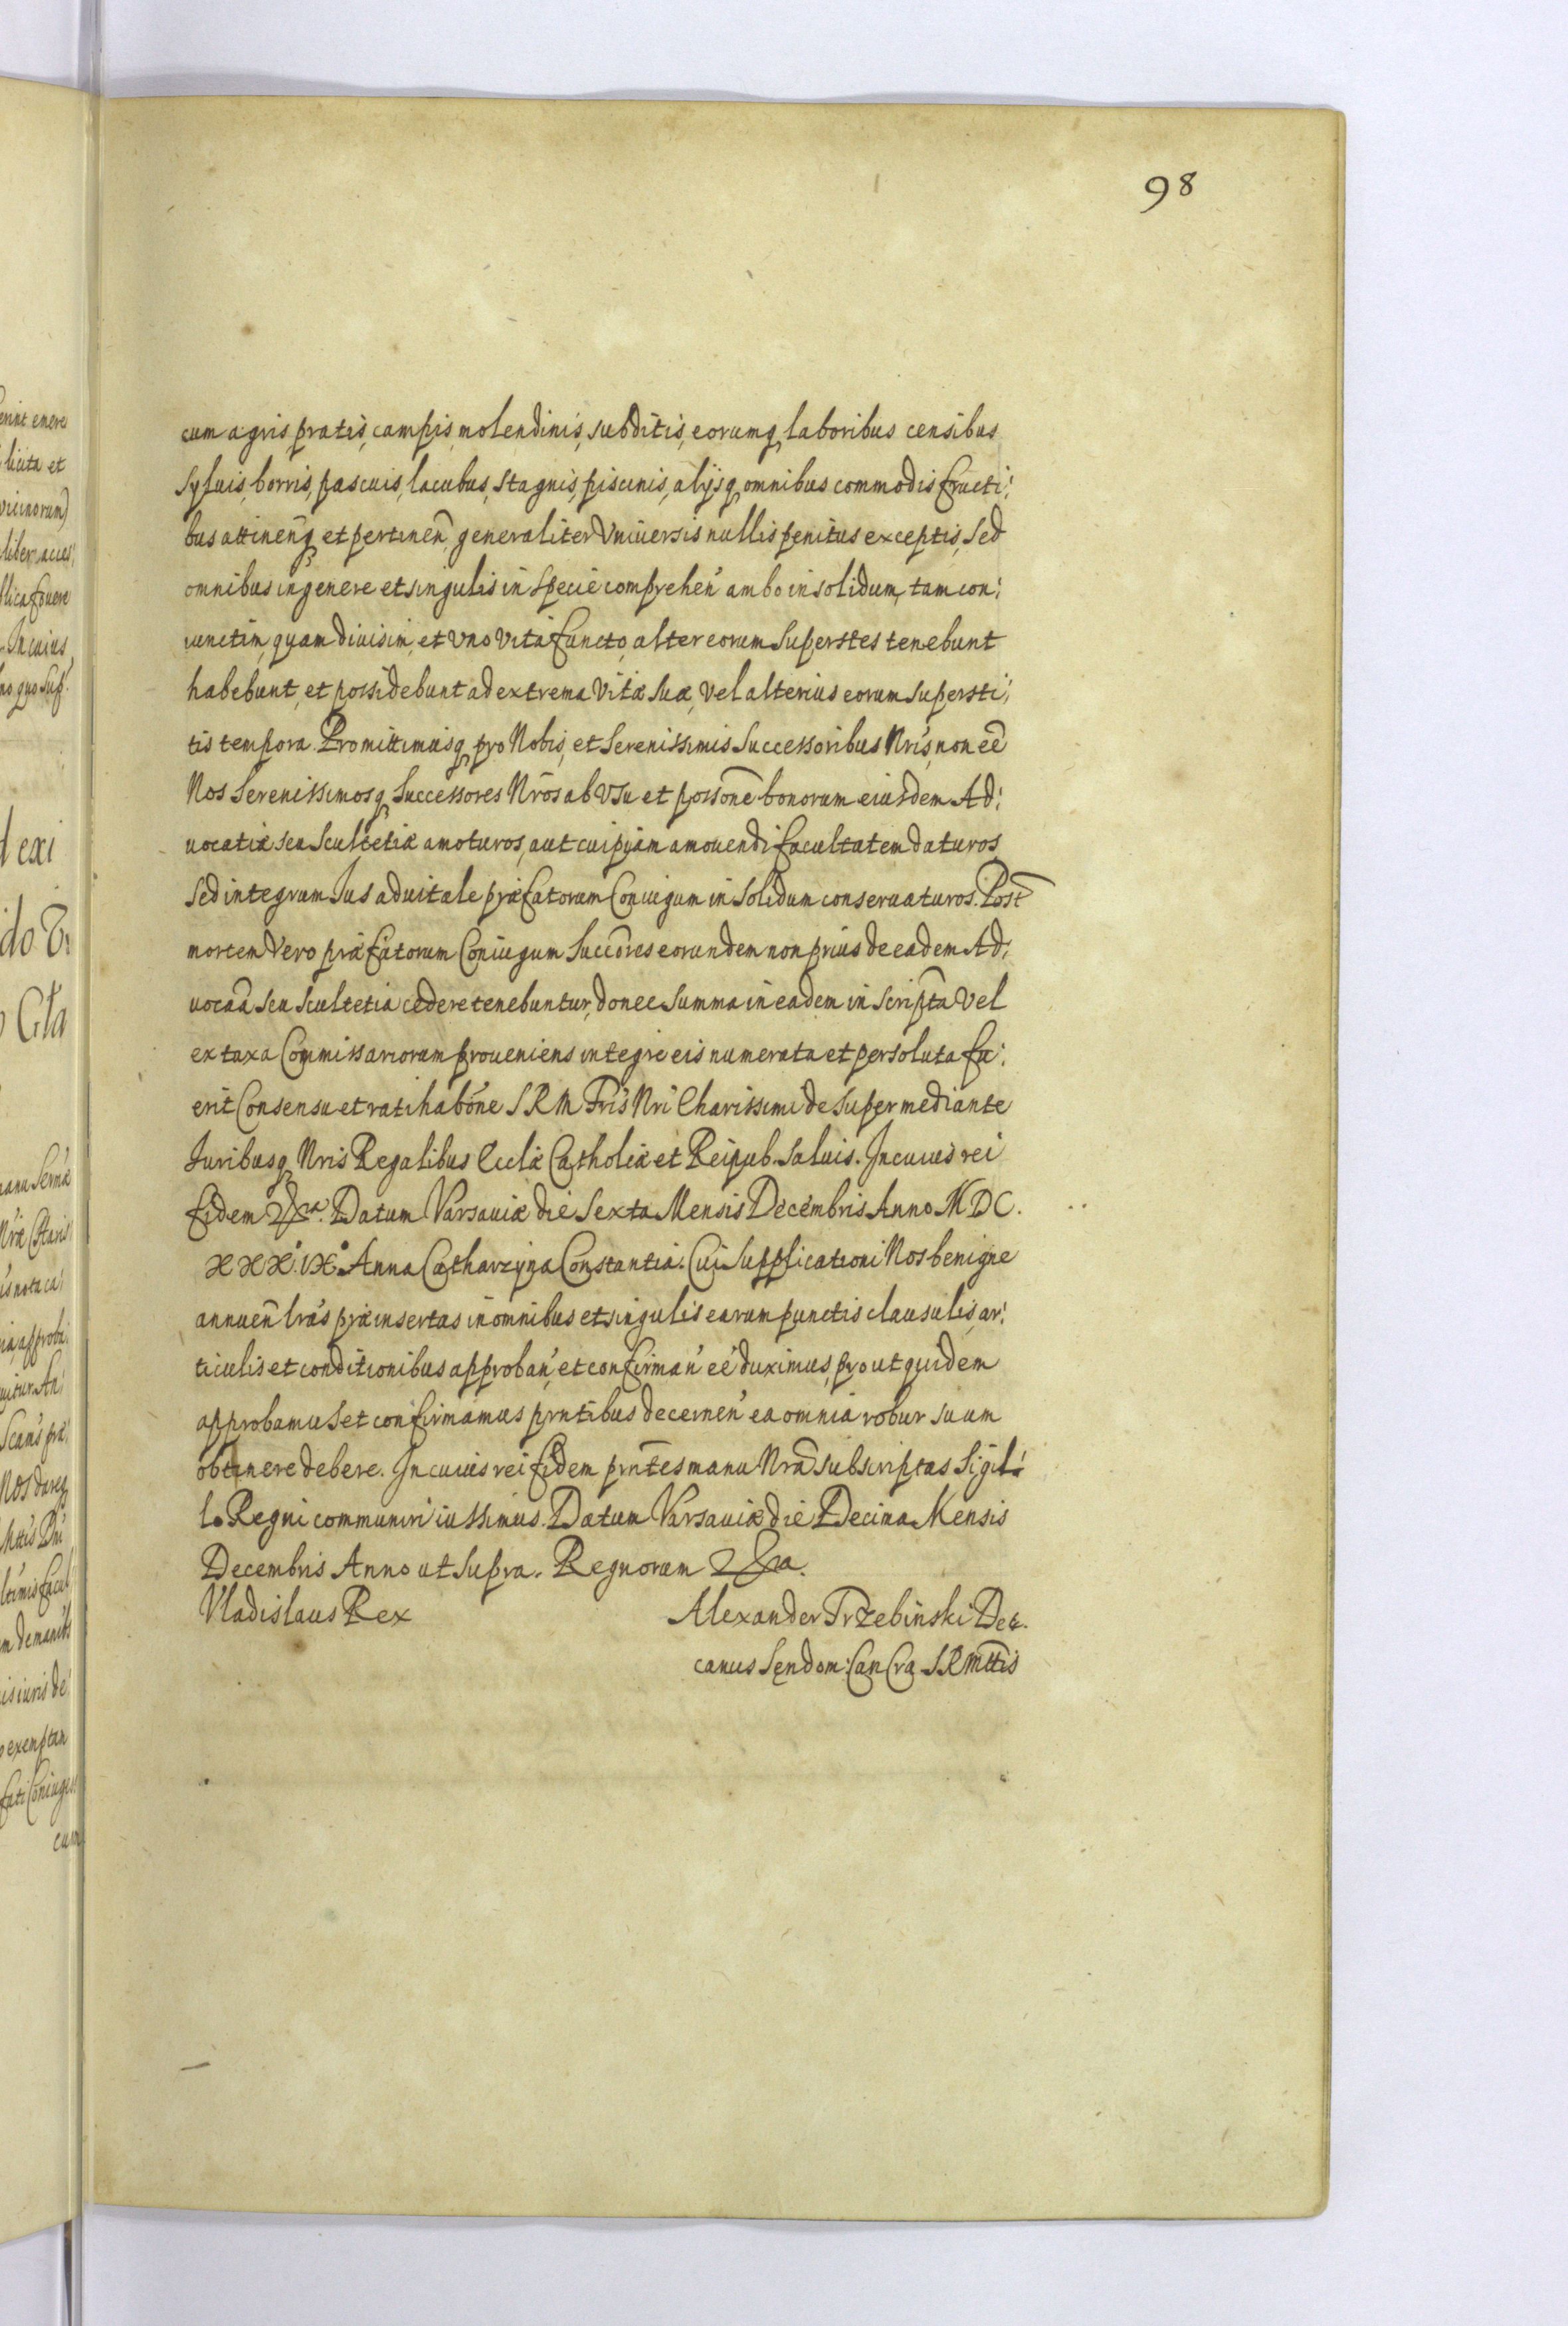 98
cum agris, pratis, campis, molendinis, subditis, eorumq, laboribus censibus
Syluis, borris, pascuis, lacubus, stagnis, piscinis, alijsq, omnibus commodis fructi:
bus attinen̄q, et pertinen̄, generaliter Vniuersis nullis penitus exceptis, Sed
omnibus in genere et singulis in specie comprehen̄ ambo in solidum, tam con:
iunctim, quam diuisim, et Vno Vita functo, alter eorum Superstes tenebunt
habebunt, et possidebunt ad extrema Vitæ suæ, Vel alterius eorum supersti:
tis tempora. Promittimusq, pro Nobis, et Serenissimis Successoribus Nrīs, non eē
Nos Serenissimosq, Successores Nrōs ab Vsu et possōne bonorum eiusdem Ad:
uocatiæ seu Scultetiæ amoturos, aut cuipiam amouendi facultatem daturos
Sed integrum Jus aduitale præfatorum Coniugum in solidum conseruaturos. Post
mortem Vero præfatorum Coniugum Succōres eorundem non prius de eadem Ad:
uocaā seu Scultetia cedere tenebuntur, donec summa in eadem inscripta Vel
ex taxa Commissariorum proueniens integre eis numerata et persoluta fu:
erit Consensu et ratihabōne S R M Frīs Nrī Charissimi desuper mediante
Juribusq, Nrīs Regalibus Ecclæ Catholiæ et Reipub. saluis. In cuius rei
fidem &ra. Datum Varsauiæ die Sexta Mensis Decembris Anno MDC.
XXX.IX. Anna Catharzyna Constantia. Cui Supplicationi Nos benigne
annuen̄ lrās præinsertas in omnibus et singulis earum punctis clausulis, ar:
ticulis et conditionibus approban̄, et confirman̄ eē duximus, prout quidem
approbamus et confirmamus prntībus decernen̄ ea omnia robur suum
obtinere debere. In cuius rei fidem prntēs manu Nrā subscriptas Sigil:
lo Regni communiri iussimus. Datum Varsauiæ die Decima Mensis
Decembris Anno ut supra. Regnorum &ra.
Vladislaus Rex Alexander Trzebinski De:
canus Sendom: Can Cra S R Mttis